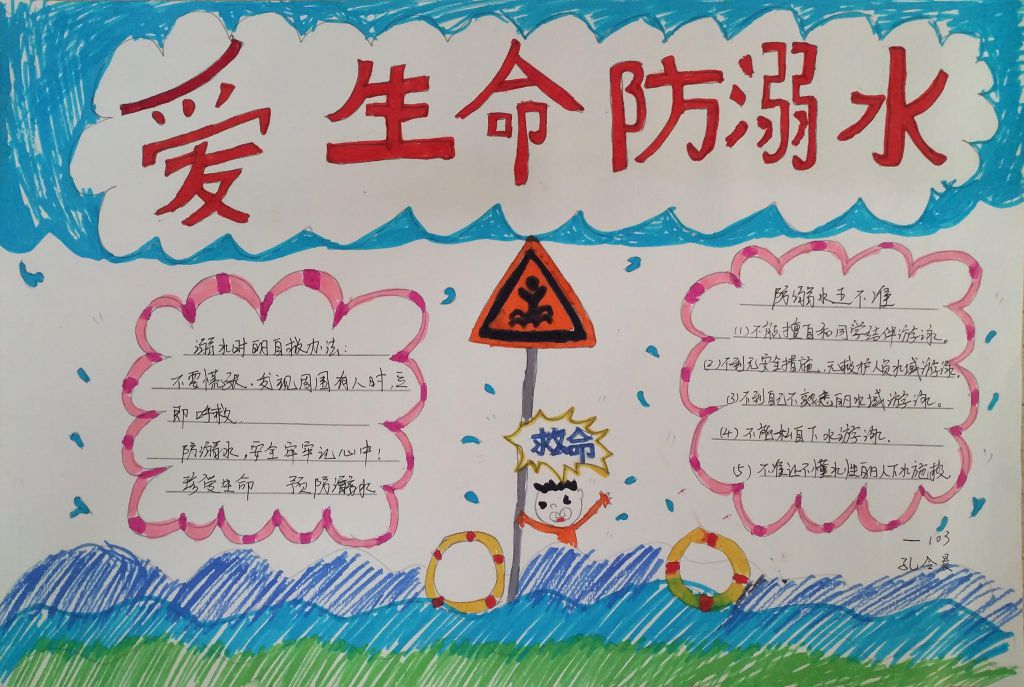 爱生命防溺水
溺水时的自救办法:
不要慌张.发现周围有人时,立
即呼救.
防溺水,安全牢牢记心中!
珍爱生命 预防溺水
救命
防溺水五不准
(1)不能擅自和同学结伴游泳。
(2)不到无安全措施、无救护人员水域游泳.
(3)不到自己不熟悉的水域游泳。
(4)不能私自下水游泳.
(5)不准让不懂水性的人下水施救
一 103
孔令晨